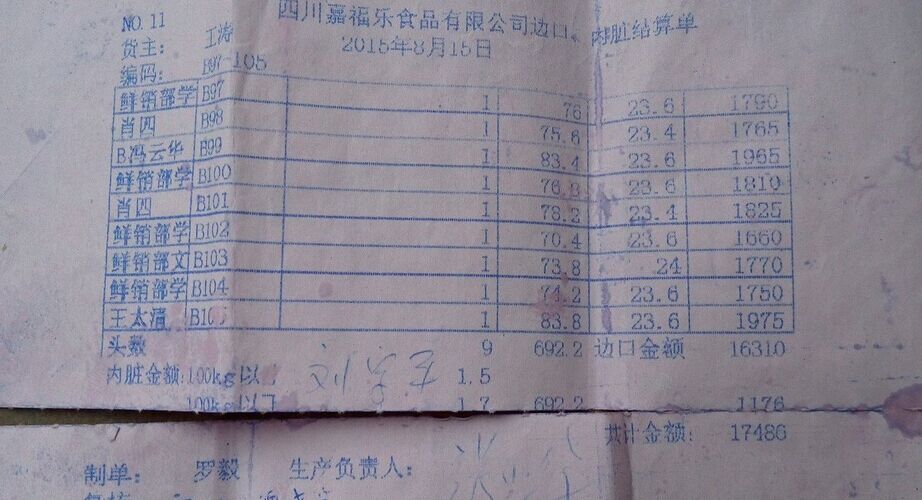 四川嘉福乐食品有限公司边口、内脏结算单
NO.11
2015年8月15日
货主: 王涛
编码: B97-105
鲜销部学 B97 1 76 23.6 1790
肖四 B98 1 75.6 23.4 1765
B冯云华 B99 1 83.4 23.6 1965
鲜销部学 B100 1 76.8 23.6 1810
肖四 B101 1 78.2 23.4 1825
鲜销部学 B102 1 70.4 23.6 1660
鲜销部文 B103 1 73.8 24 1770
鲜销部学 B104 1 74.2 23.6 1750
王太清 B105 1 83.8 23.6 1975
头数 9 692.2 边口金额 16310
内脏金额:100kg以 刘学军 1.5
100kg以下 1.7 692.2 1176
共计金额: 17486
制单: 罗毅 生产负责人: